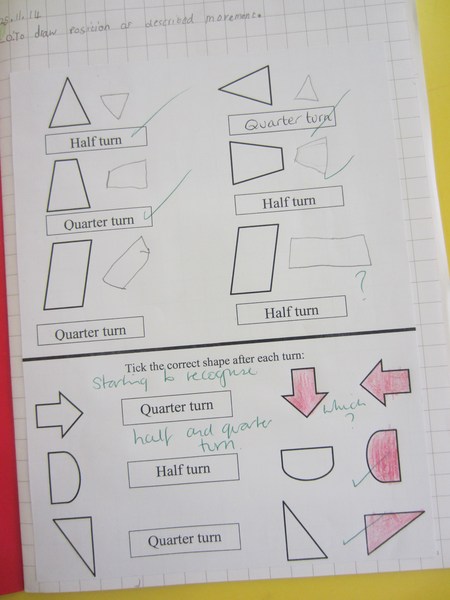 25.11.14
LO: To draw position or described movement.
Half turn
Quarter turn
Quarter turn
Half turn
Quarter turn
Half turn
?
Tick the correct shape after each turn:
Starting to recognise
Quarter turn
which
?
half and quarter
turn.
Half turn
Quarter turn